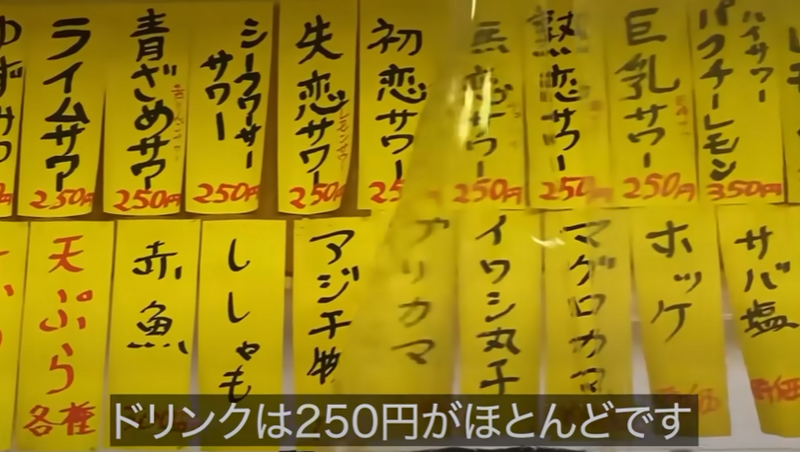 ライムサワー
250円
青ざめサワー
250円
シークワーサーサワー
250円
失恋サワー
250円
初恋サワー
25
無恋サワー
250円
熟恋サワー
250
巨乳サワー
250円
ハイサワー
パクチーレモン
350円
天ぷら
各種
赤魚
ししゃも
アジ干物
ブリカマ
イワシ丸干
マグロカマ
ホッケ
サバ塩
時価
ドリンクは250円がほとんどです